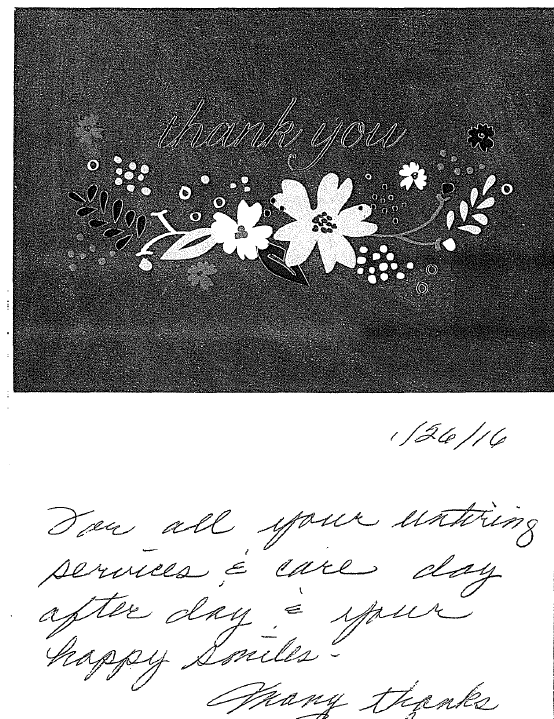 thank you
1/26/16
For all your untiring
services & care day
after day & your
happy smiles -
Many thanks